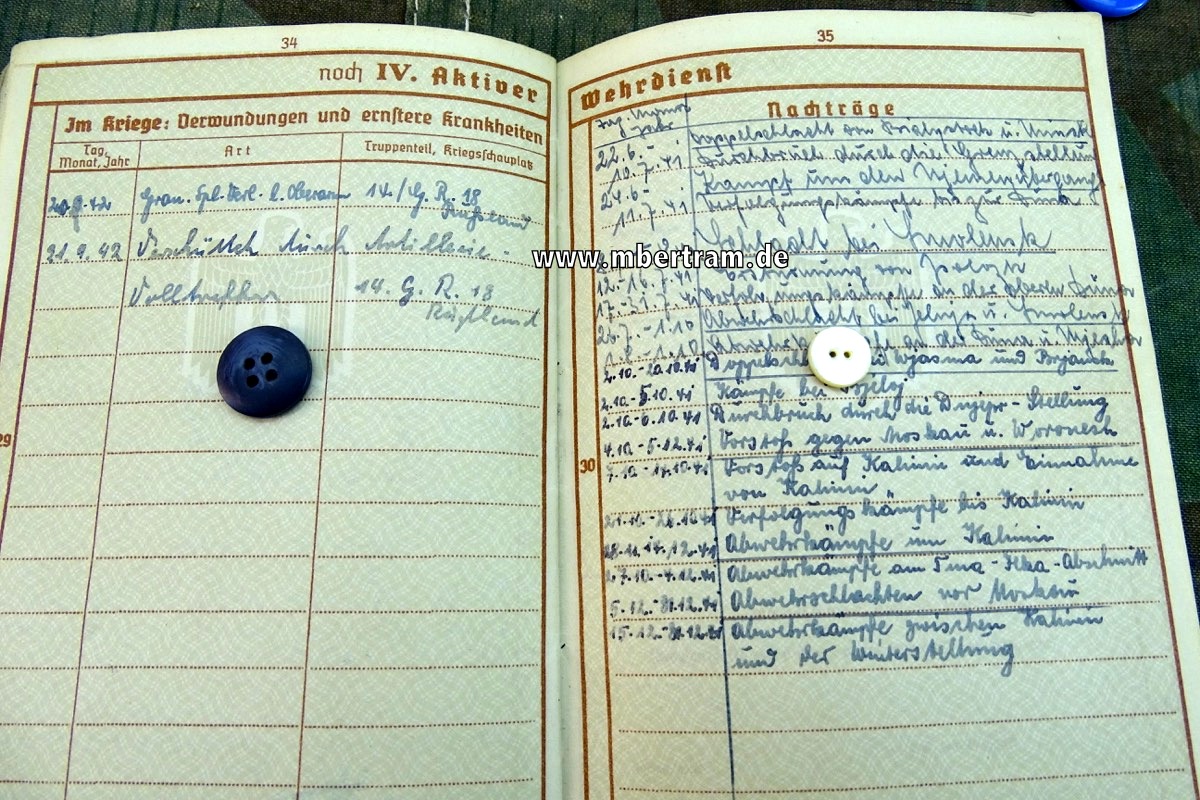 34
noch IV. Aktiver
Im Kriege: Verwundungen und ernstere Krankheiten
Tag, Monat, Jahr
Art
Truppenteil, Kriegsschauplatz
9.42 Gran. Spl. Verl. l. Oberarm 14/G.R. 18
Rußland
21.9.42 Verschüttet durch Artillerie-
Volltreffer 14. G.R. 18
Rußland
29
35
Wehrdienst
Nachträge
Tag, Monat
Jahr
22.6.- Doppelschlacht von Bialystock u. Minsk
10.7.41 Durchbruch durch die Grenzstellung
24.6- Kampf um den Njemenübergang
11.7.41 Verfolgungskämpfe bis zur Düna
Schlacht bei Smolensk
www.mbertram.de
12.-16.7.41 von Polozk
17.-27.7.41 an der oberen Düna
26.7.-1.10 Abwehrschlacht bei Jelnja u. Smolensk
-1.10 an der Düna u.
2.10.-20.10.41 Wjasma und Brjansk
2.10.-5.10.41 Kämpfe bei Bjeloj
2.10.-6.10.41 Durchbruch durch die Dnjepr-Stellung
4.10.-5.12.41 Vorstoß gegen Moskau u. Woronesh
30
7.10.-17.10.41 Vorstoß auf Kalinin und Einnahme
von Kalinin
Verfolgungskämpfe bis Kalinin
Abwehrkämpfe um Kalinin
27.10.-4.12.41 Abwehrkämpfe am Tma- -Abschnitt
5.12.-31.12.41 Abwehrschlachten vor Moskau
15.12.-31.12.41 Abwehrkämpfe zwischen Kalinin
und der Winterstellung